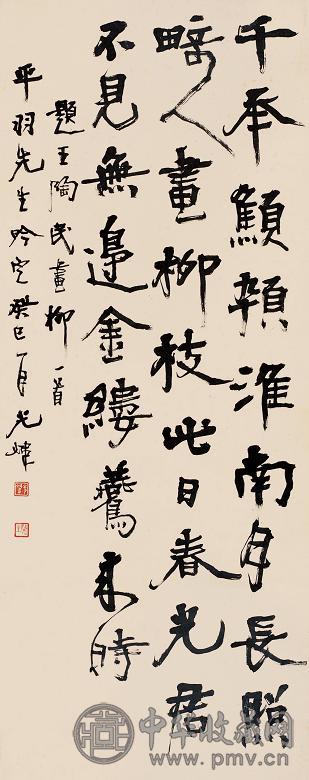 千年顦顇淮南月長照
畸人畫柳枝此日春光君
不見無邊金縷鷰來時
題王陶民畫柳一首
平羽先生吟定癸巳一月光煒
中华收藏网
www.pmv.cn